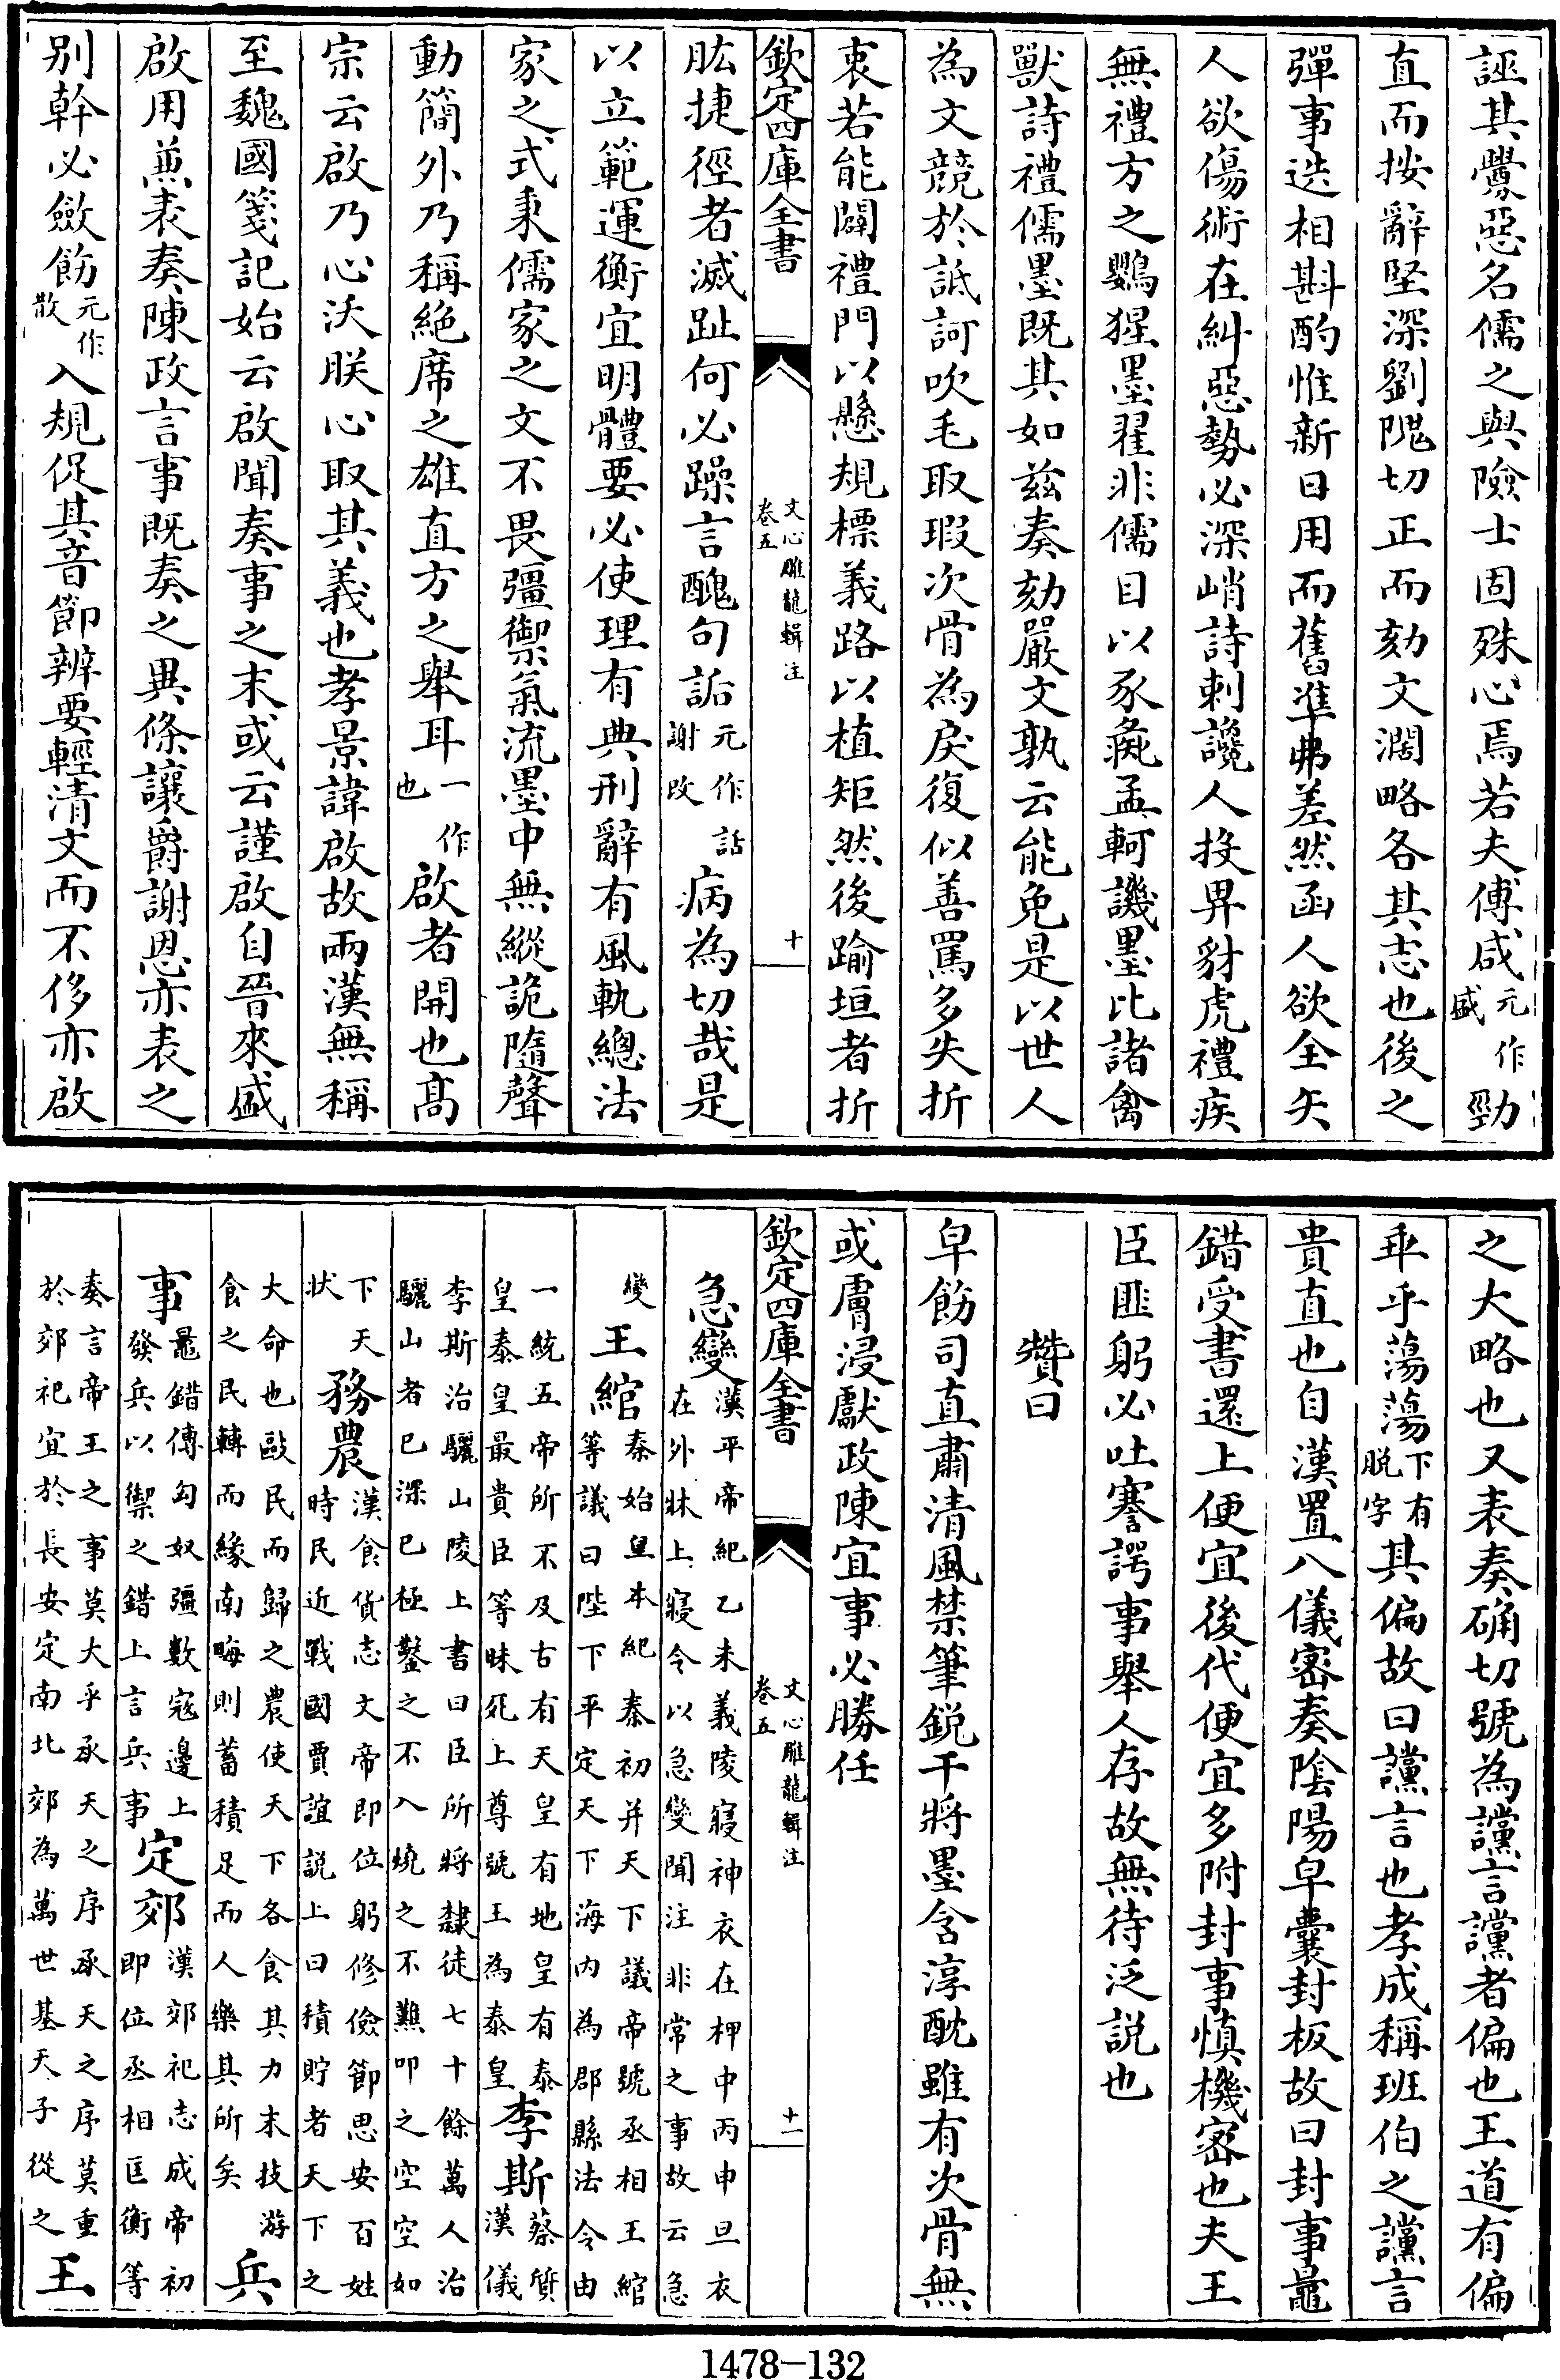 誣其釁惡名儒之與險士固殊心焉若夫傅咸元作盛勁
直而按辭堅深劉隗切正而劾文濶略各其志也後之
彈事迭相斟酌惟新日用而舊準弗差然函人欲全矢
人欲傷術在糾惡勢必深峭詩刺讒人投畀豺虎禮疾
無禮方之鸚猩墨翟非儒目以豕彘孟軻譏墨比諸禽
獸詩禮儒墨既其如兹奏劾嚴文孰云能免是以世人
為文競於詆訶吹毛取瑕次骨為戾復似善罵多失折
衷若能闢禮門以懸規標義路以植矩然後踰垣者折
欽定四庫全書 文心雕龍輯注 卷五 十
肱捷徑者滅趾何必躁言醜句詬元作話謝改病為切哉是
以立範運衡宜明體要必使理有典刑辭有風軌總法
家之式秉儒家之文不畏彊禦氣流墨中無縱詭隨聲
動簡外乃稱絶席之雄直方之舉耳一作也啟者開也髙
宗云啟乃心沃朕心取其義也孝景諱啟故兩漢無稱
至魏國箋記始云啟聞奏事之末或云謹啟自晉來盛
啟用兼表奏陳政言事既奏之異條讓爵謝恩亦表之
别幹必斂飭元作散入規促其音節辨要輕清文而不侈亦啟
之大略也又表奏确切號為讜言讜者偏也王道有偏
乖乎蕩蕩下有脱字其偏故曰讜言也孝成稱班伯之讜言
貴直也自漢置八儀密奏陰陽皁囊封板故曰封事鼂
錯受書還上便宜後代便宜多附封事慎機密也夫王
臣匪躬必吐謇諤事舉人存故無待泛説也
贊曰
皁飭司直肅清風禁筆鋭干將墨含淳酖雖有次骨無
或膚浸獻政陳宜事必勝任
欽定四庫全書 文心雕龍輯注 卷五 十一
急變漢平帝紀乙未義陵寢神衣在柙中丙申旦衣在外牀上寢令以急變聞注非常之事故云急
變王綰秦始皇本紀秦初并天下議帝號丞相王綰等議曰陛下平定天下海内為郡縣法令由
一統五帝所不及古有天皇有地皇有泰皇泰皇最貴臣等昧死上尊號王為泰皇李斯蔡質漢儀
李斯治驪山陵上書曰臣所將隸徒七十餘萬人治驪山者已深已極鑿之不入燒之不難叩之空空如
下天狀務農漢食貨志文帝即位躬修儉節思安百姓時民近戰國賈誼説上曰積貯者天下之
大命也歐民而歸之農使天下各食其力末技游食之民轉而緣南晦則蓄積足而人樂其所矣兵
事鼂錯傳匈奴彊數寇邊上發兵以禦之錯上言兵事定郊漢郊祀志成帝初即位丞相匡衡等
奏言帝王之事莫大乎承天之序承天之序莫重於郊祀宜於長安定南北郊為萬世基天子從之王
1478-132